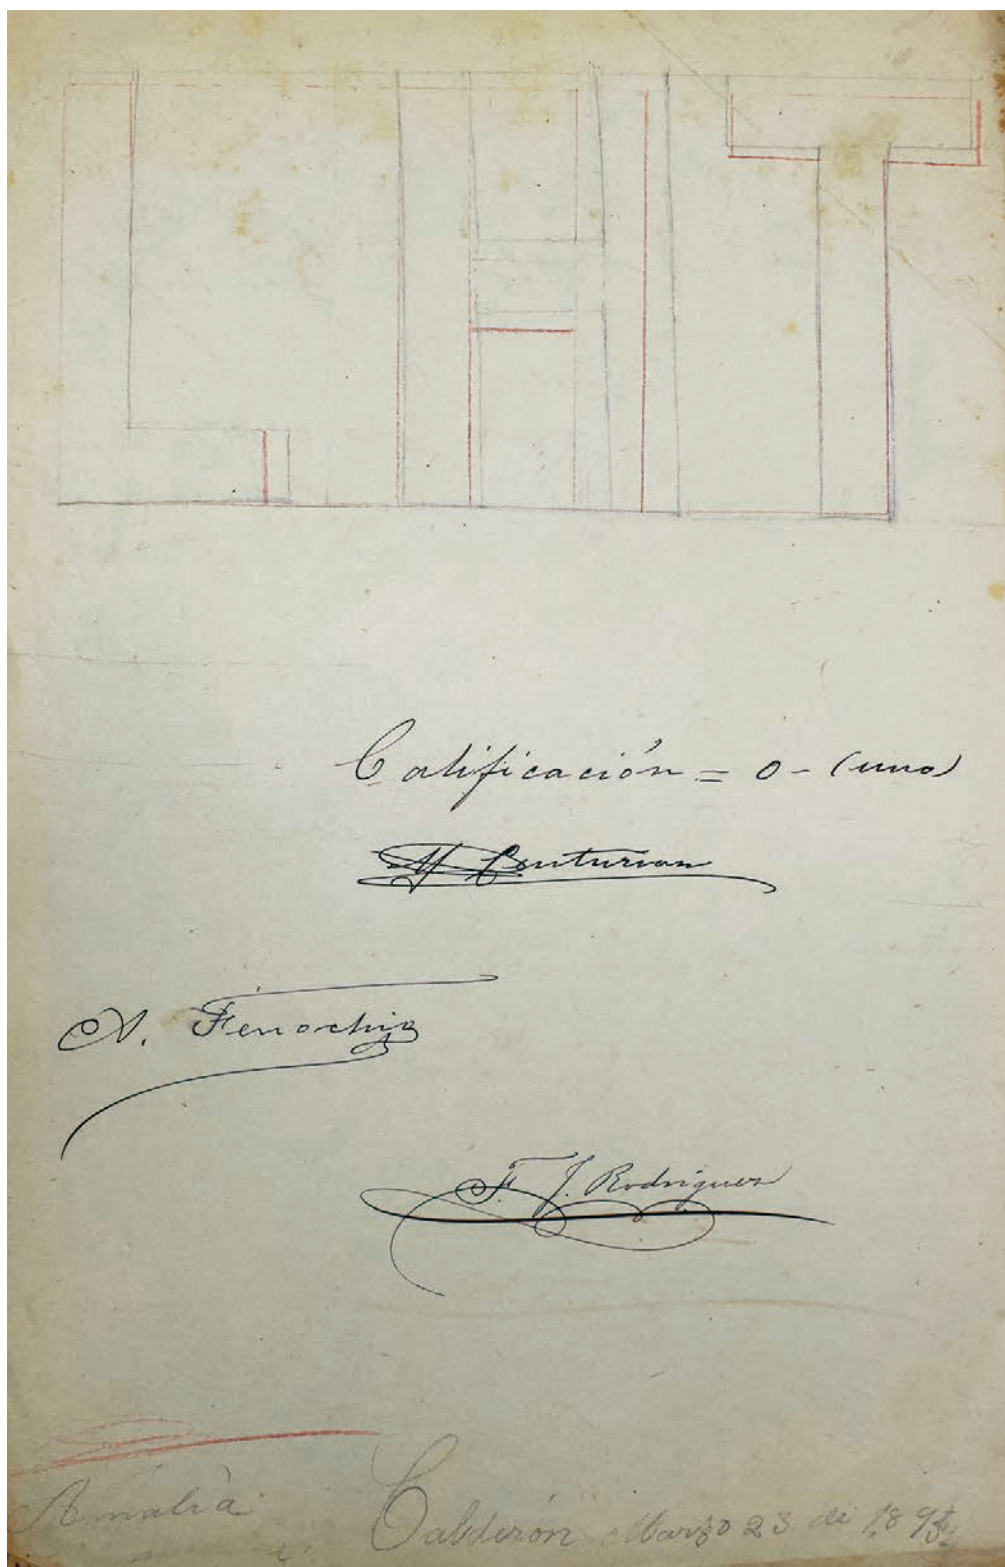 LHT
Calificación = 0 - (uno)
Centurion
A. Fenochio
F. J. Rodriguez
Amalia Calderón Marzo 23 de